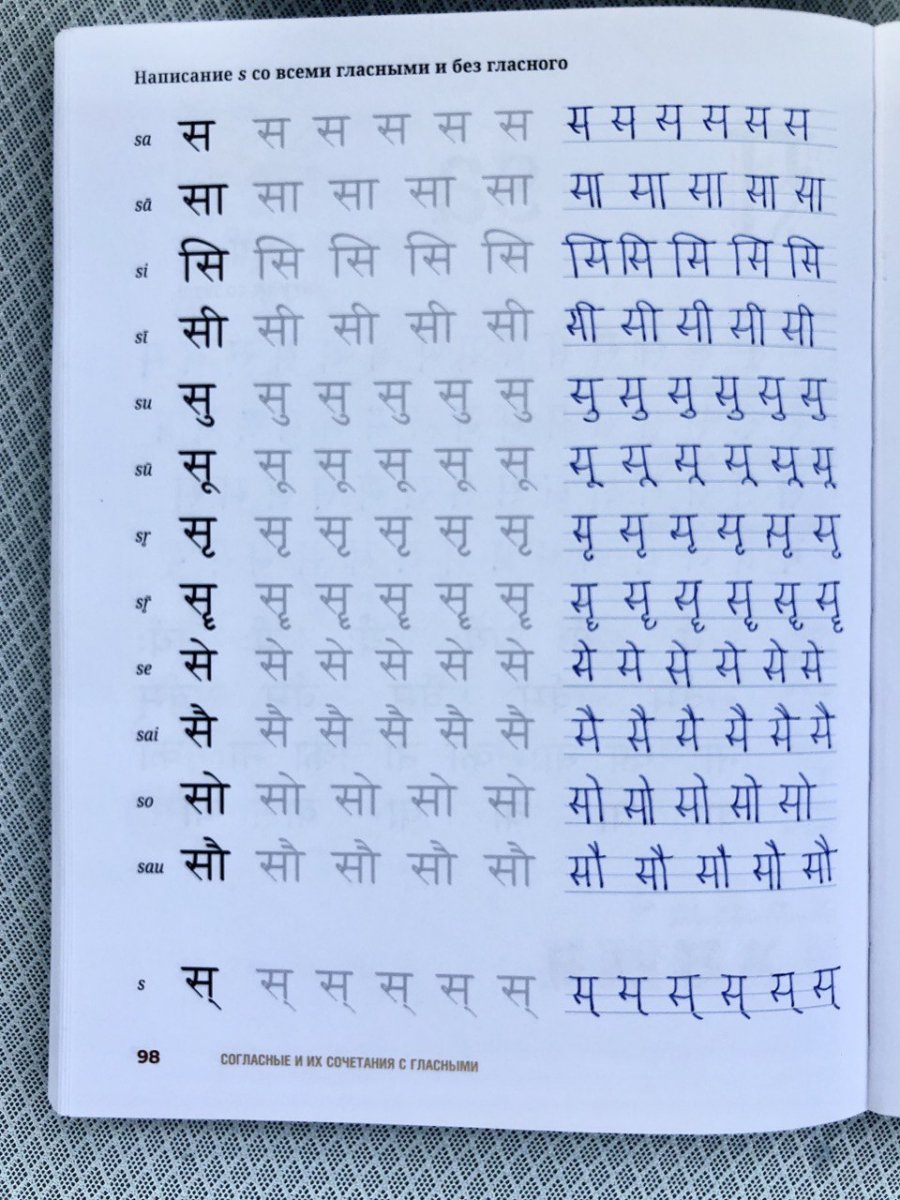 Написание s со всеми гласными и без гласного
sa स स स स स स स स स स स स
sā सा सा सा सा सा सा सा सा सा सा
si सि सि सि सि सि सि सि सि सि सि
sī सी सी सी सी सी सी सी सी सी सी
su सु सु सु सु सु सु सु सु सु सु सु सु
sū सू सू सू सू सू सू सू सू सू सू सू सू
sr̥ सृ सृ सृ सृ सृ सृ सृ सृ सृ सृ सृ सृ
sr̥̄ सॄ सॄ सॄ सॄ सॄ सॄ सॄ सॄ सॄ सॄ सॄ सॄ
se से से से से से से से से से से से से
sai सै सै सै सै सै सै सै सै सै सै सै सै
so सो सो सो सो सो सो सो सो सो सो
sau सौ सौ सौ सौ सौ सौ सौ सौ सौ सौ
s स् स् स् स् स् स् स् स् स् स् स् स्
98 СОГЛАСНЫЕ И ИХ СОЧЕТАНИЯ С ГЛАСНЫМИ